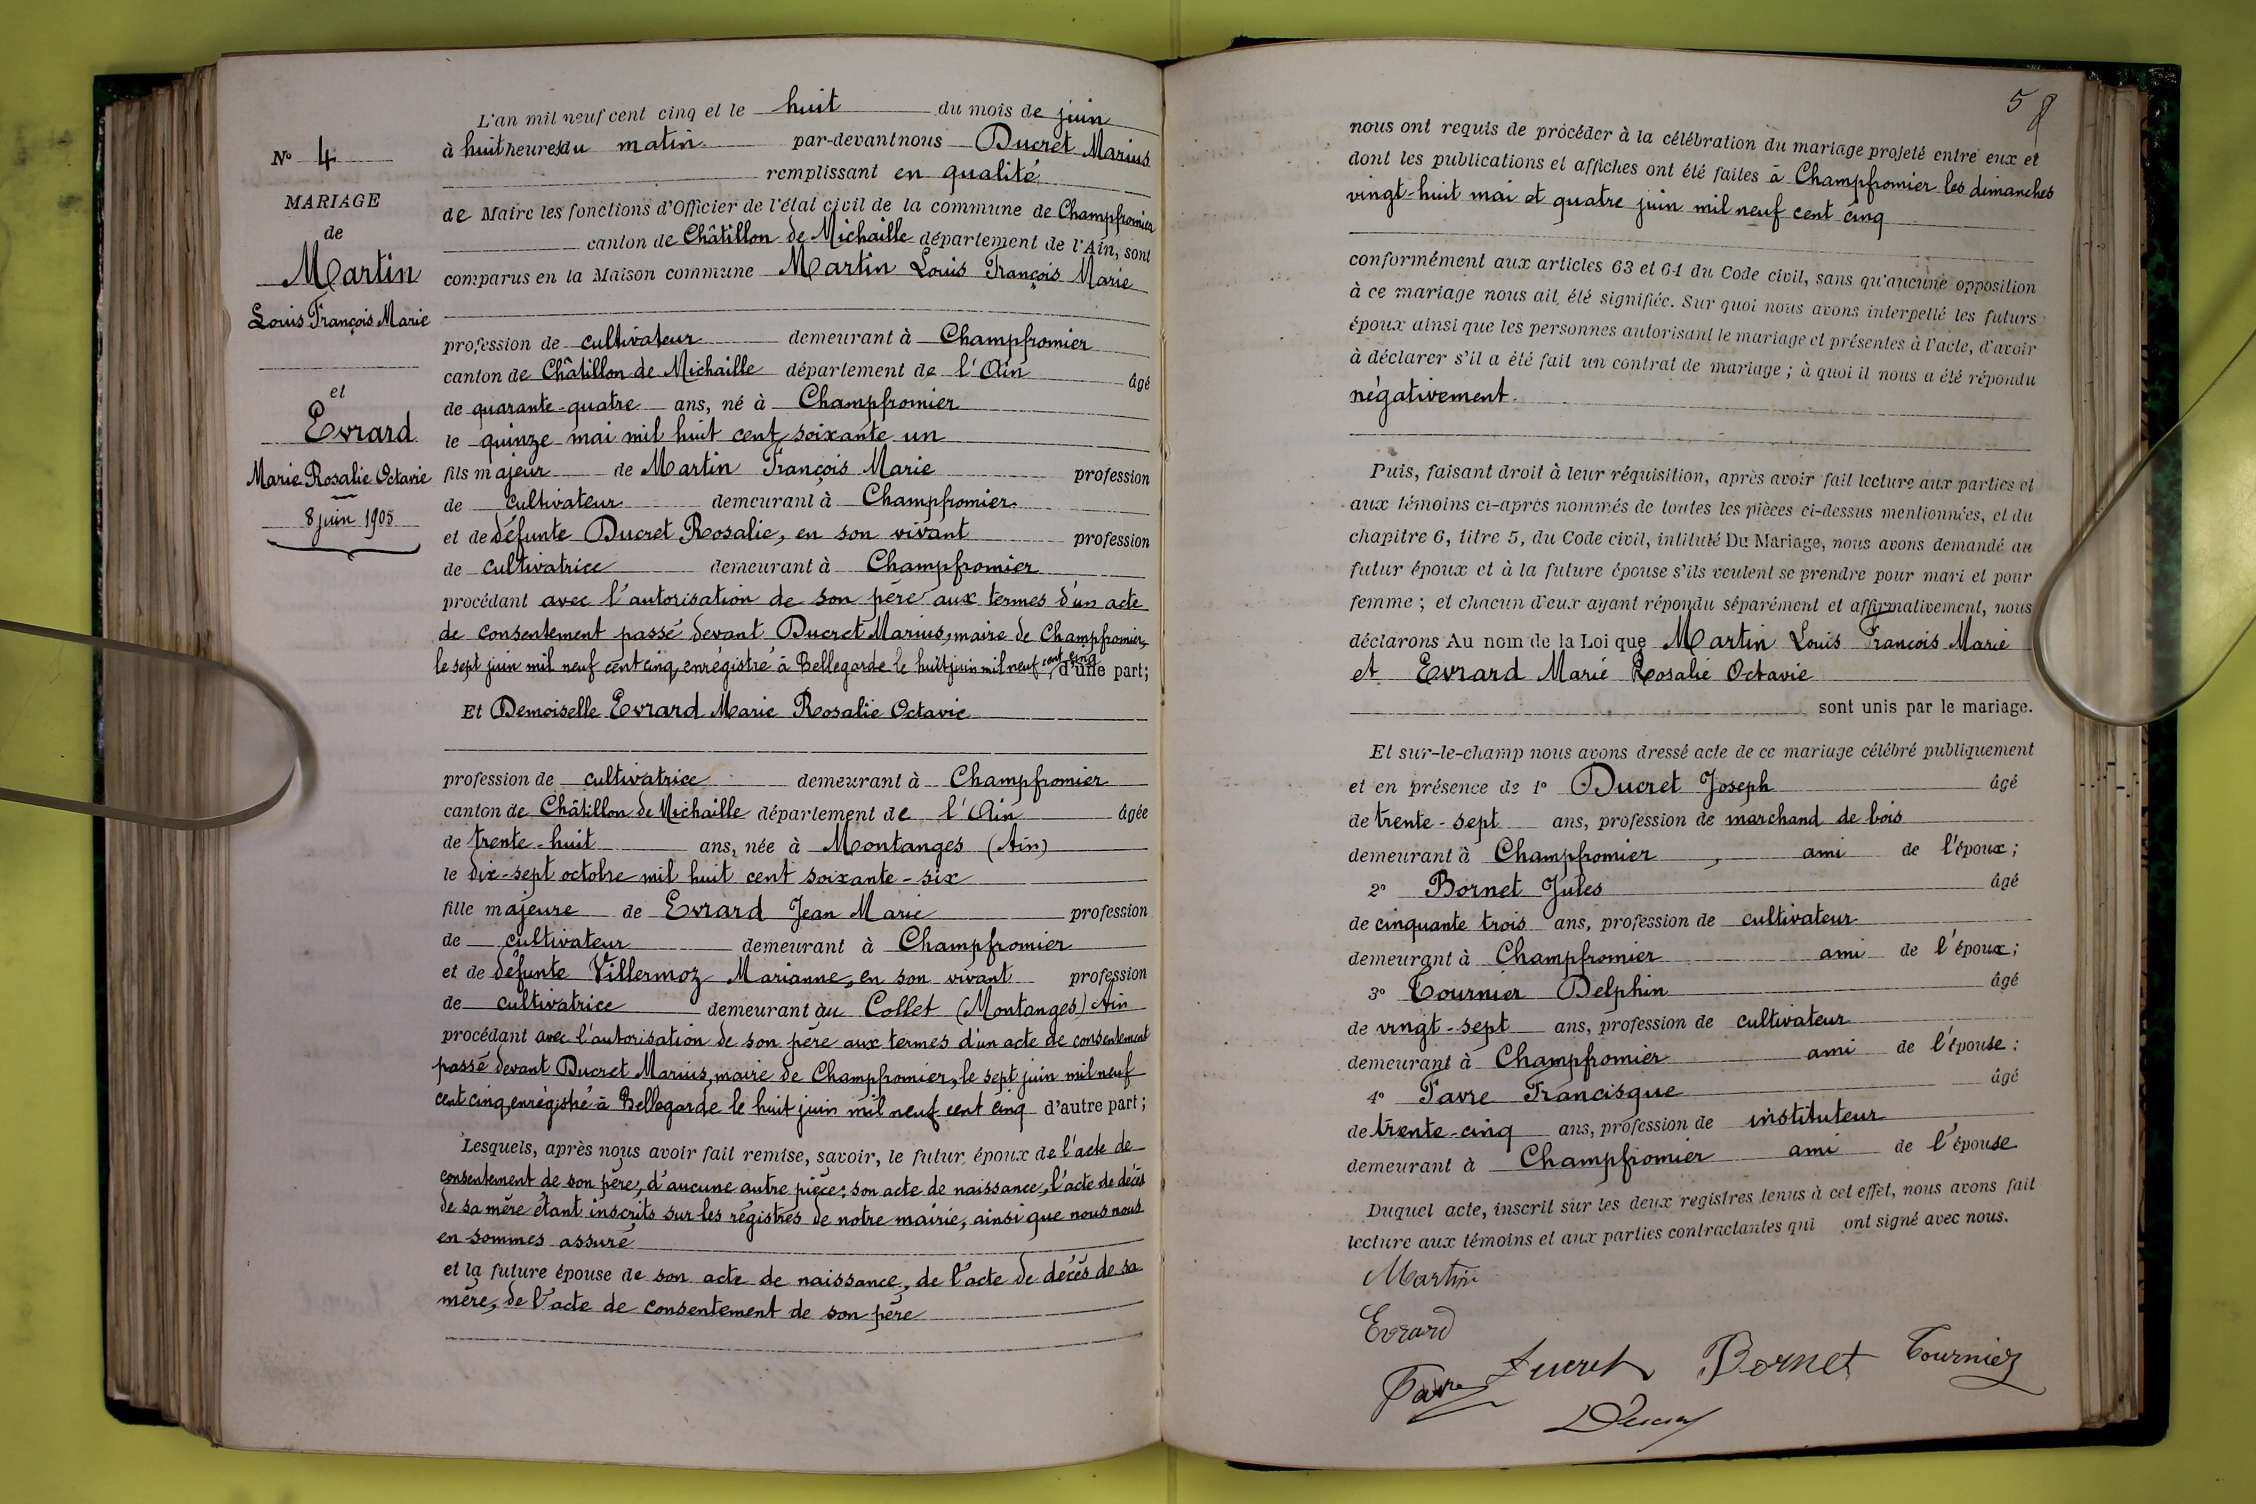 N° 4
MARIAGE
de
Martin
Louis François Marie
et
Evrard
Marie Rosalie Octavie
8 juin 1905
L'an mil neuf cent cinq et le huit du mois de juin
à huit heures du matin par-devant nous Ducret Marius
remplissant en qualité
de Maire les fonctions d'Officier de l'état civil de la commune de Champfromier
canton de Châtillon de Michaille département de l'Ain, sont
comparus en la Maison commune Martin Louis François Marie
profession de cultivateur demeurant à Champfromier
canton de Châtillon de Michaille département de l'Ain âgé
de quarante-quatre ans, né à Champfromier
le quinze mai mil huit cent soixante un
fils majeur de Martin François Marie profession
de cultivateur demeurant à Champfromier
et de défunte Ducret Rosalie, en son vivant profession
de cultivatrice demeurant à Champfromier
procédant avec l'autorisation de son père aux termes d'un acte
de consentement passé devant Ducret Marius, maire de Champfromier,
le sept juin mil neuf cent cinq, enrégistré à Bellegarde le huit juin mil neuf cent cinq, d'une part;
Et Demoiselle Evrard Marie Rosalie Octavie
profession de cultivatrice demeurant à Champfromier
canton de Châtillon de Michaille département de l'Ain âgée
de trente-huit ans, née à Montanges (Ain)
le dix-sept octobre mil huit cent soixante-six
fille majeure de Evrard Jean Marie profession
de cultivateur demeurant à Champfromier
et de défunte Villermoz Marianne, en son vivant profession
de cultivatrice demeurant au Collet (Montanges) Ain
procédant avec l'autorisation de son père aux termes d'un acte de consentement
passé devant Ducret Marius, maire de Champfromier, le sept juin mil neuf
cent cinq, enrégistré à Bellegarde le huit juin mil neuf cent cinq d'autre part;
Lesquels, après nous avoir fait remise, savoir, le futur époux de l'acte de
consentement de son père, d'aucune autre pièce; son acte de naissance, l'acte de décès
de sa mère étant inscrits sur les régistres de notre mairie, ainsi que nous nous
en sommes assuré
et la future épouse de son acte de naissance, de l'acte de décès de sa
mère, de l'acte de consentement de son père
5
nous ont requis de procéder à la célébration du mariage projeté entre eux et
dont les publications et affiches ont été faites à Champfromier les dimanches
vingt-huit mai et quatre juin mil neuf cent cinq
conformément aux articles 63 et 64 du Code civil, sans qu'aucune opposition
à ce mariage nous ait été signifiée. Sur quoi nous avons interpellé les futurs
époux ainsi que les personnes autorisant le mariage et présentes à l'acte, d'avoir
à déclarer s'il a été fait un contrat de mariage; à quoi il nous a été répondu
négativement.
Puis, faisant droit à leur réquisition, après avoir fait lecture aux parties et
aux témoins ci-après nommés de toutes les pièces ci-dessus mentionnées, et du
chapitre 6, titre 5, du Code civil, intitulé Du Mariage, nous avons demandé au
futur époux et à la future épouse s'ils veulent se prendre pour mari et pour
femme; et chacun d'eux ayant répondu séparément et affirmativement, nous
déclarons Au nom de la Loi que Martin Louis François Marie
et Evrard Marie Rosalie Octavie
sont unis par le mariage.
Et sur-le-champ nous avons dressé acte de ce mariage célébré publiquement
et en présence de 1° Ducret Joseph âgé
de trente-sept ans, profession de marchand de bois
demeurant à Champfromier, ami de l'époux;
2° Bornet Jules âgé
de cinquante trois ans, profession de cultivateur
demeurant à Champfromier ami de l'époux;
3° Tournier Delphin âgé
de vingt-sept ans, profession de cultivateur
demeurant à Champfromier ami de l'épouse:
4° Favre Francisque âgé
de trente-cinq ans, profession de instituteur
demeurant à Champfromier ami de l'épouse
Duquel acte, inscrit sur les deux registres tenus à cet effet, nous avons fait
lecture aux témoins et aux parties contractantes qui ont signé avec nous.
Martin
Evrard
Favre Ducret Bornet Tournier
Ducret